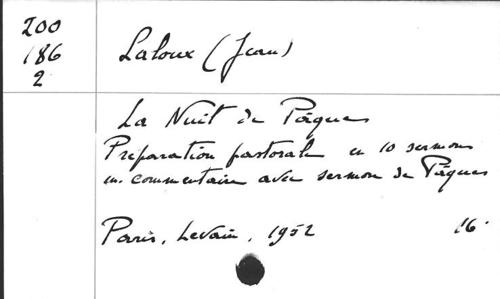 200
186
2
Laloux (Jean)
La Nuit de Pâques
Préparation pastorale en 10 sermons
commentaire avec sermon de Pâques
Paris, Levain, 1952 16°